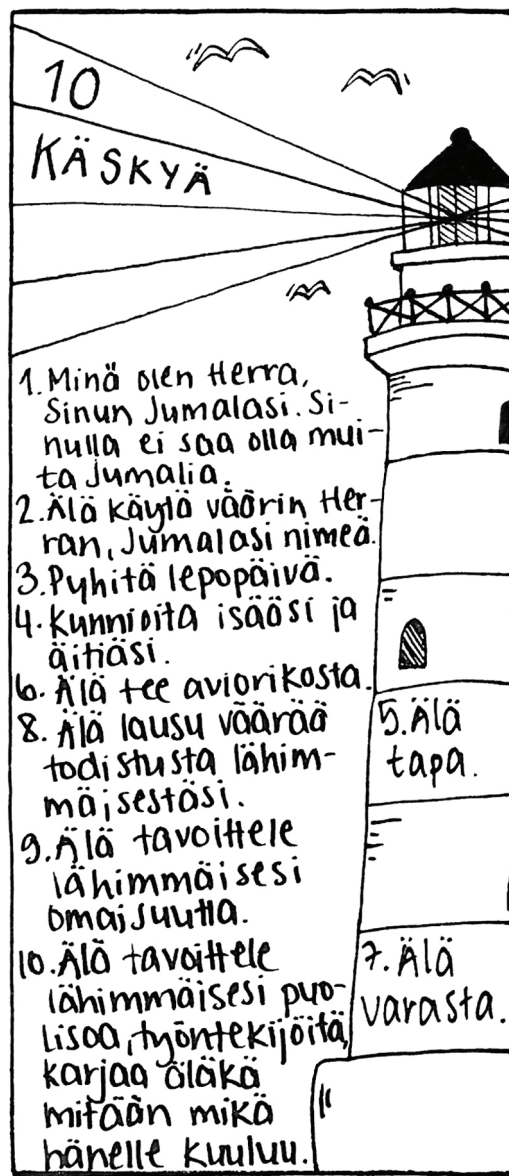 10
KÄSKYÄ
1. Minä olen Herra,
Sinun Jumalasi. Si-
nulla ei saa olla mui-
ta Jumalia.
2. Älä käytä väärin Her-
ran, Jumalasi nimeä.
3. Pyhitä lepopäivä.
4. Kunnioita isääsi ja
äitiäsi.
5. Älä
tapa.
6. Älä tee aviorikosta.
7. Älä
varasta.
8. Älä lausu väärää
todistusta lähim-
mäisestäsi.
9. Älä tavoittele
lähimmäisesi
omaisuutta.
10. Älä tavoittele
lähimmäisesi puo-
lisoa, työntekijöitä,
karjaa äläkä
mitään mikä
hänelle kuuluu.